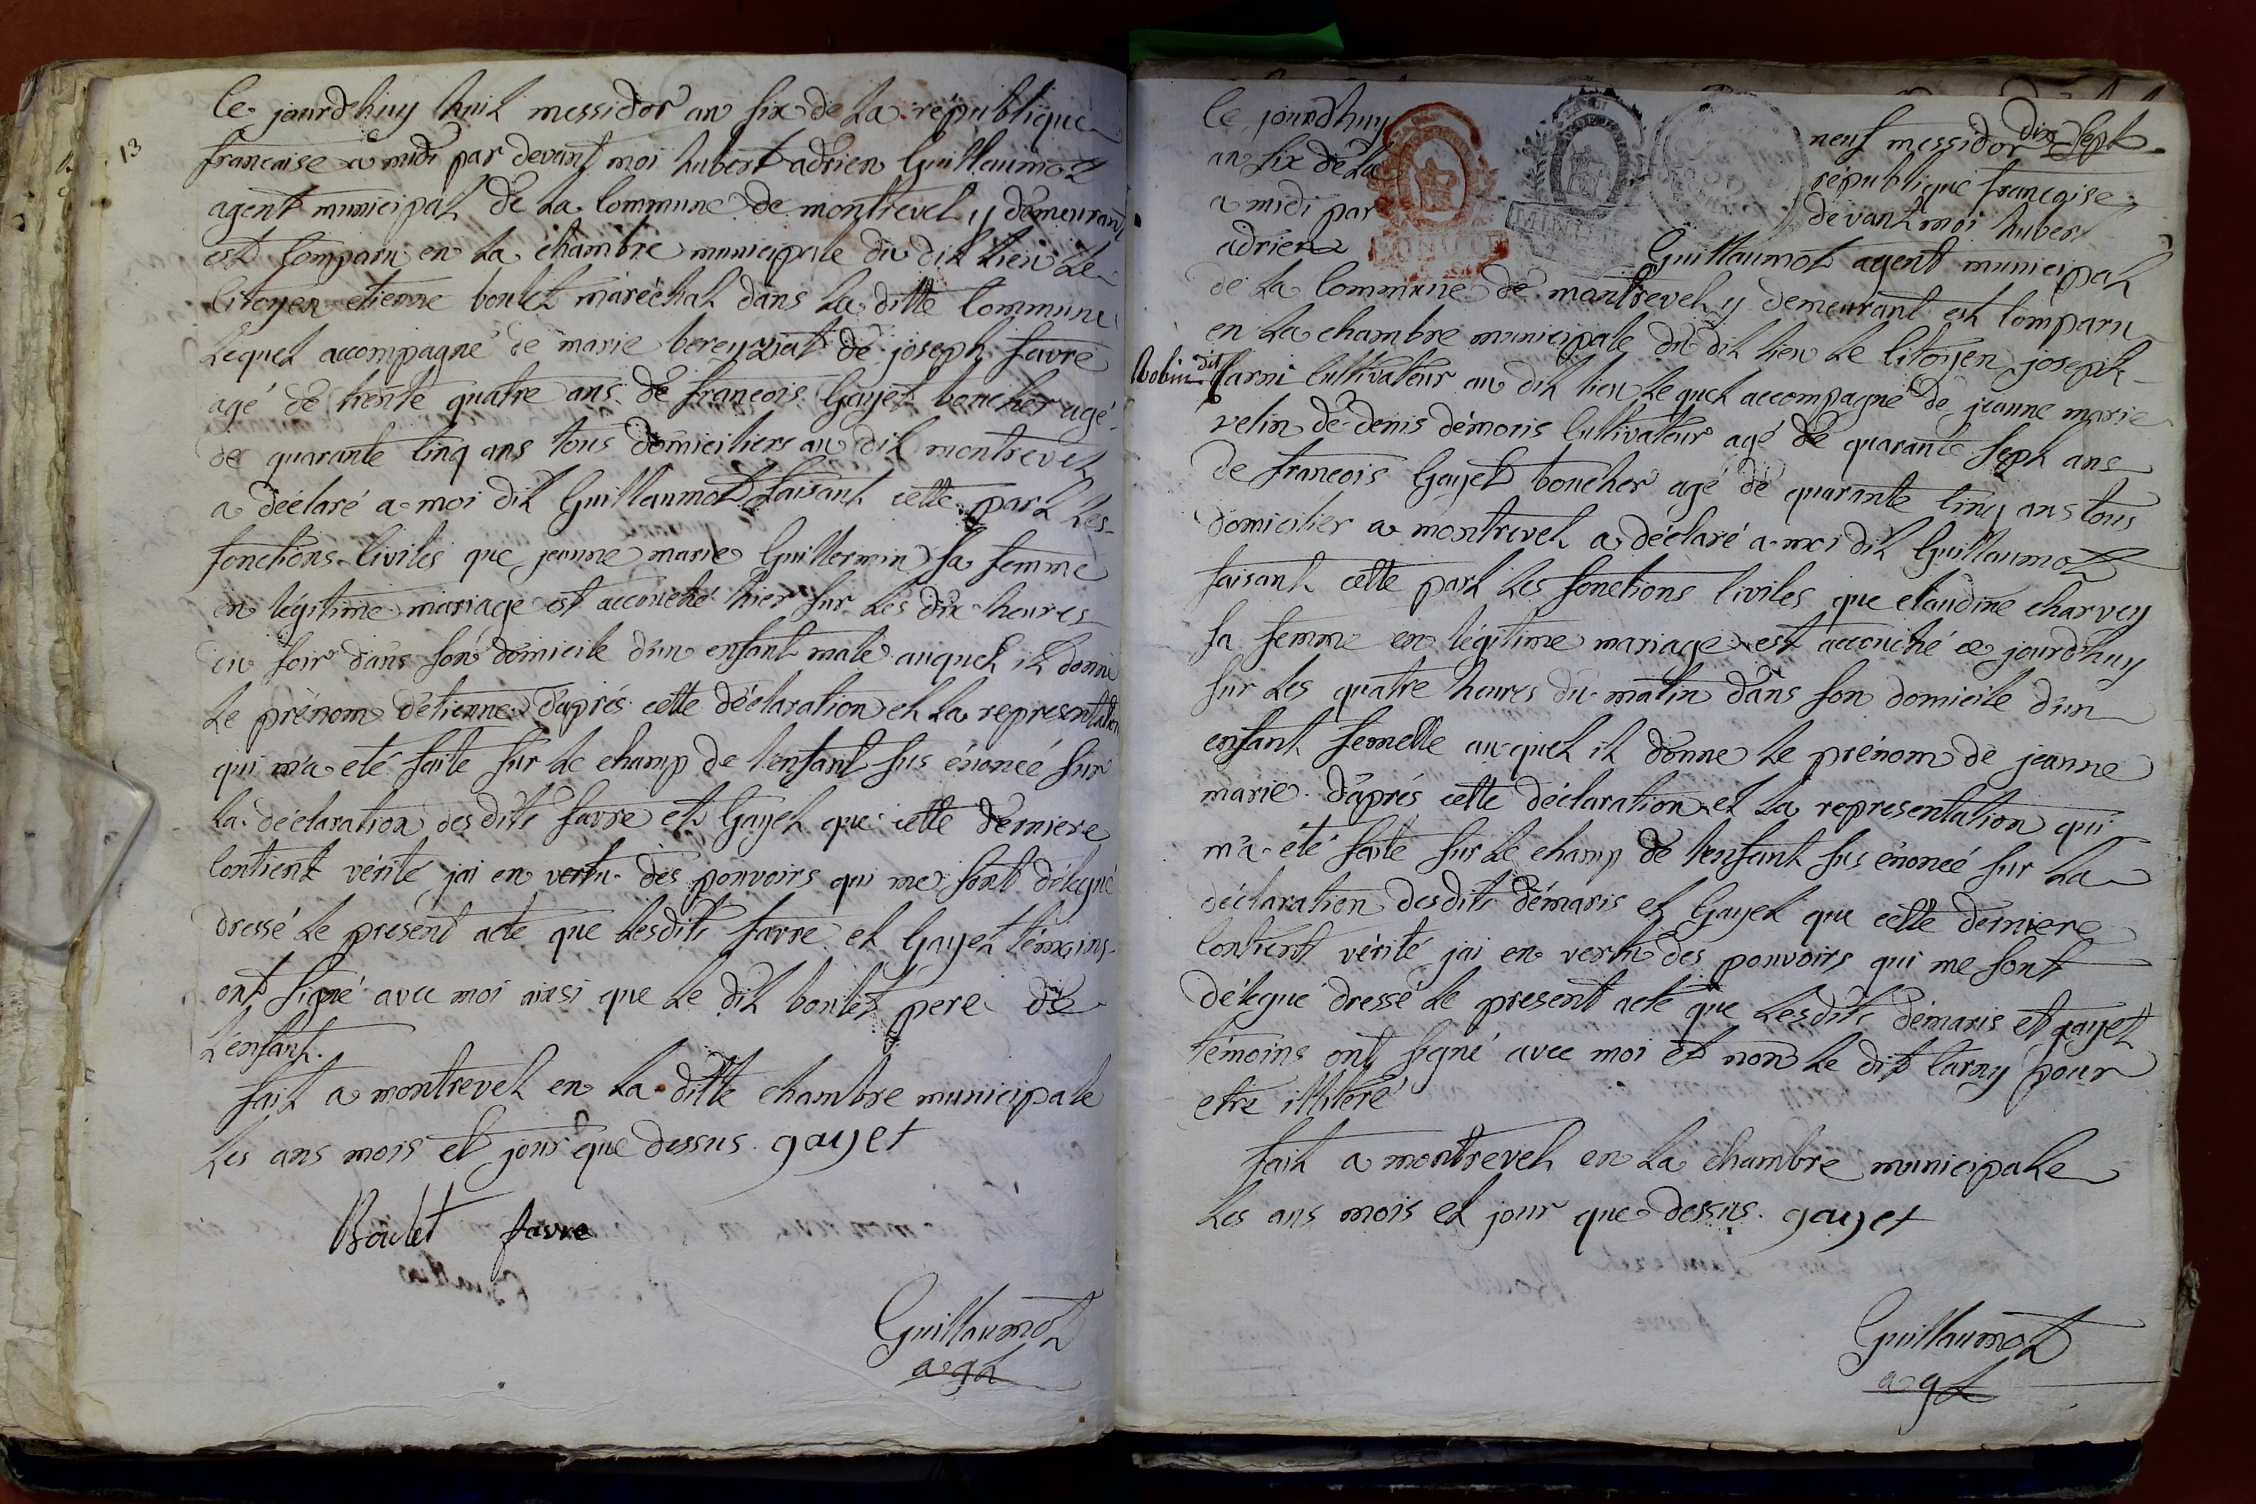 13
Ce jourdhuy huit messidor an six de la république
francaise a midi par devant moi hubert adrien Guillaumot
agent municipal de la Commune de montrevel y demeurant
est Comparu en la chambre municipale du dit lieu le
Citoyen etienne boulet maréchal dans la ditte Commune
lequel accompagné de marie bereyziat de joseph favre
agé de trente quatre ans de francois Gayet boucher agé
de quarante Cinq ans tous domiciliers au dit montrevel
a déclaré a moi dit Guillaumot faisant cette part les
fonctions Civiles que jeanne marie Guillermin sa femme
en légitime mariage est accouché hier sur les dix heures
du soir dans son domicile d'un enfant male auquel il donne
le prénom détienne d'aprés cette déclaration et la representation
qui m'a eté faite sur le champ de l'enfant sus énoncé sur
la déclaration desdits favre et Gayet que cette derniere
Contient vérité jai en vertu des pouvoirs qui me sont délegué
dressé le present acte que lesdits favre et Gayet témoins
ont signé avec moi ainsi que le dit boulet pere de
L'enfant.
fait a montrevel en la ditte chambre municipale
les ans mois et jour que dessus. gayet
Boulet favre
Guillaumot
agt
dix Sept
Ce jourdhuy neuf messidor
an six de la république francaise
a midi par devant moi huber
adrien Guillaumot agent municipal
de la Commune de montrevel y demeurant est Comparu
en la chambre municipale du dit lieu le Citoyen joseph
Robin dit Carni Cultivateur au dit lieu lequel accompagné de jeanne marie
velin de denis démoris Cultivateur agé de quarante sept ans
de francois Gayet boucher agé de quarante Cinq ans tous
domicilier a montrevel a déclaré a moi dit Guillaumot
faisant cette part les fonctions Civiles que claudine charvey
sa femme en légitime mariage est accouché ce jourd'huy
sur les quatre heures du matin dans son domicile d'un
enfant femelle auquel il donne le prénom de jeanne
marie. d'aprés cette déclaration et la representation qui
m'a été faite sur le champ de l'enfant sus énoncé sur la
déclaration desdits démaris et Gayet que cette derniere
Contient vérité jai en vertu des pouvoirs qui me sont
délegue dressé le present acte que lesdits démaris et gayet
témoins ont signé avec moi et non le dit Carny pour
etre illiteré
fait a montrevel en la chambre municipale
les ans mois et jour que dessus. gayet
Guillaumot
agt